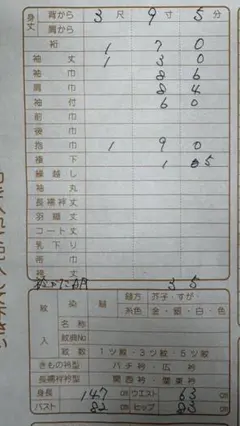 身丈 背から 3尺 9寸 5分
肩から
裄 1 7 0
袖丈 1 3 0
袖巾 8 6
肩巾 8 4
袖付 6 0
前巾
後巾
抱巾 1 9 0
褄下
繰越し
袖丸
長襦袢丈
羽織丈
コート丈
乳下り
帯巾
裄丈
3 5
紋入 染 縫 縫方 芥子・すが
糸色 金・銀・白・色
名称
紋典No
紋数 1ツ紋・3ツ紋・5ツ紋
きもの衿型 バチ衿・広衿
長襦袢衿型 関西衿・関東衿
身長 147cm ウエスト 63cm
バスト 82cm ヒップ 83cm